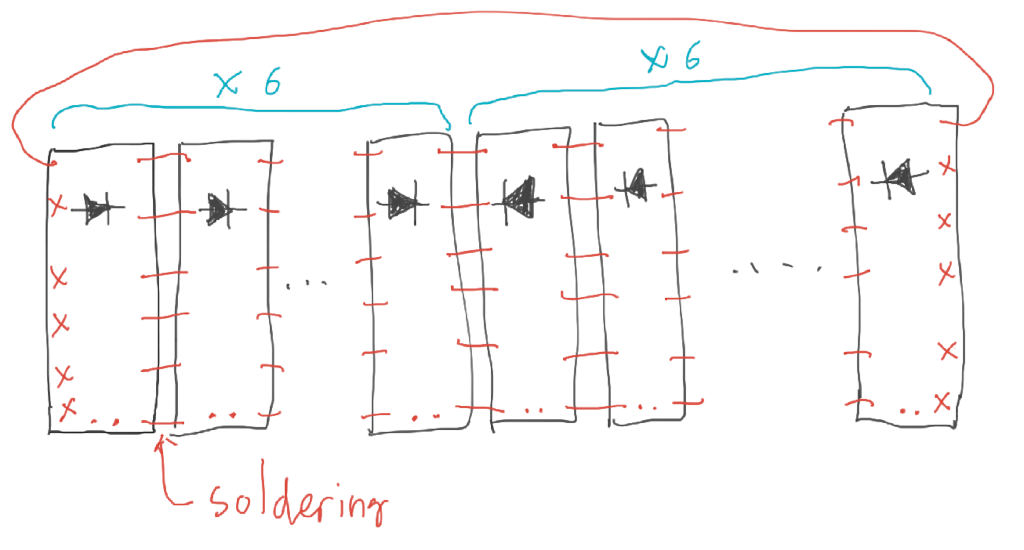 x 6
x 6
soldering